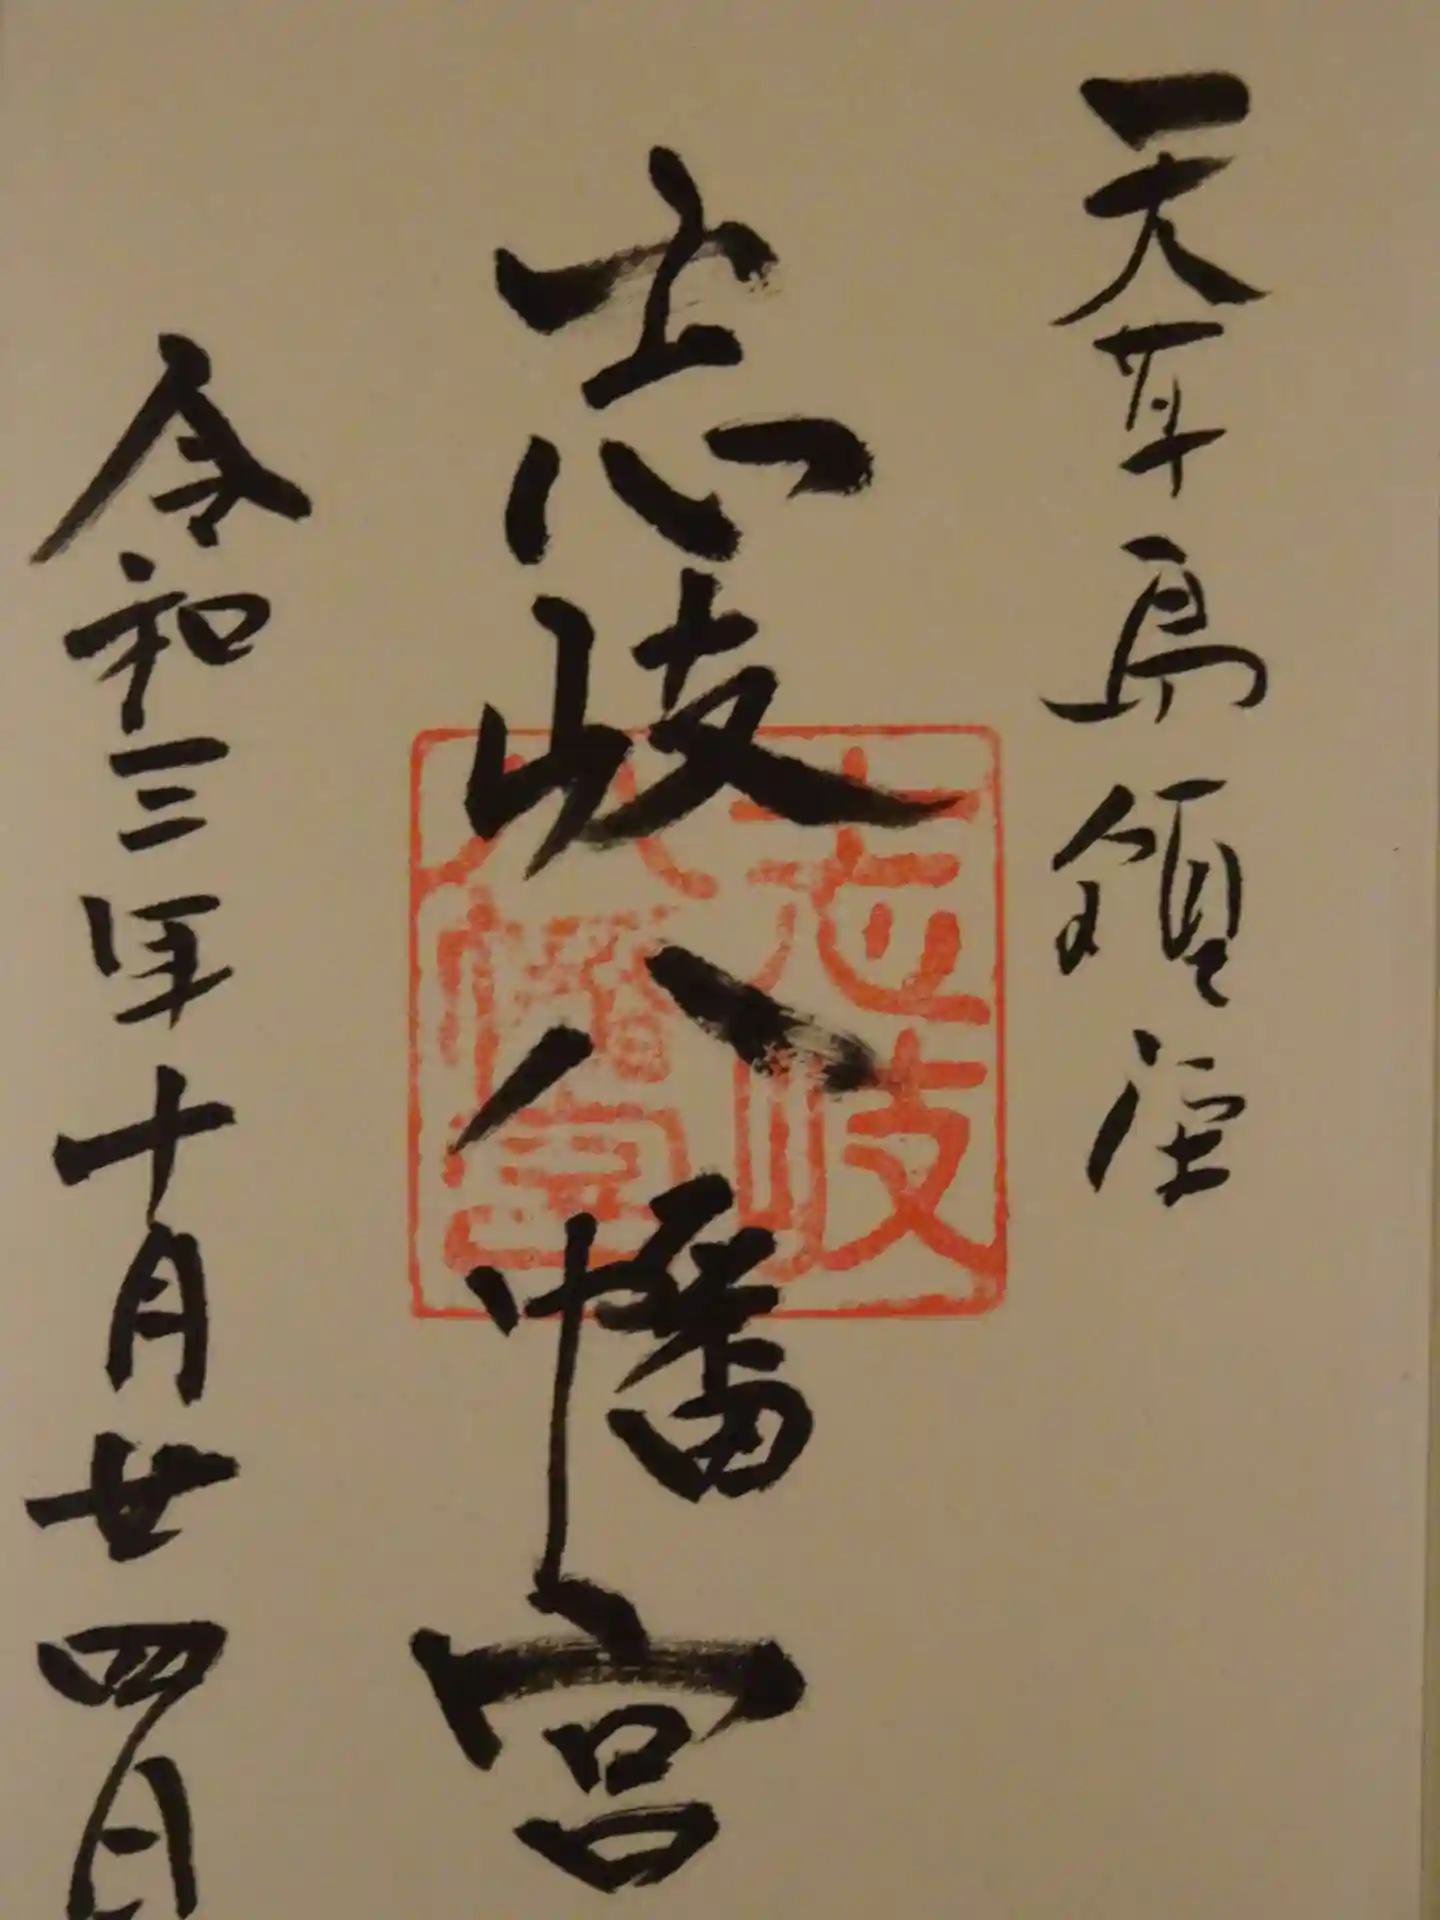 天草島鎮座
志岐八幡宮
志岐
八幡宮
令和三年十月廿四日